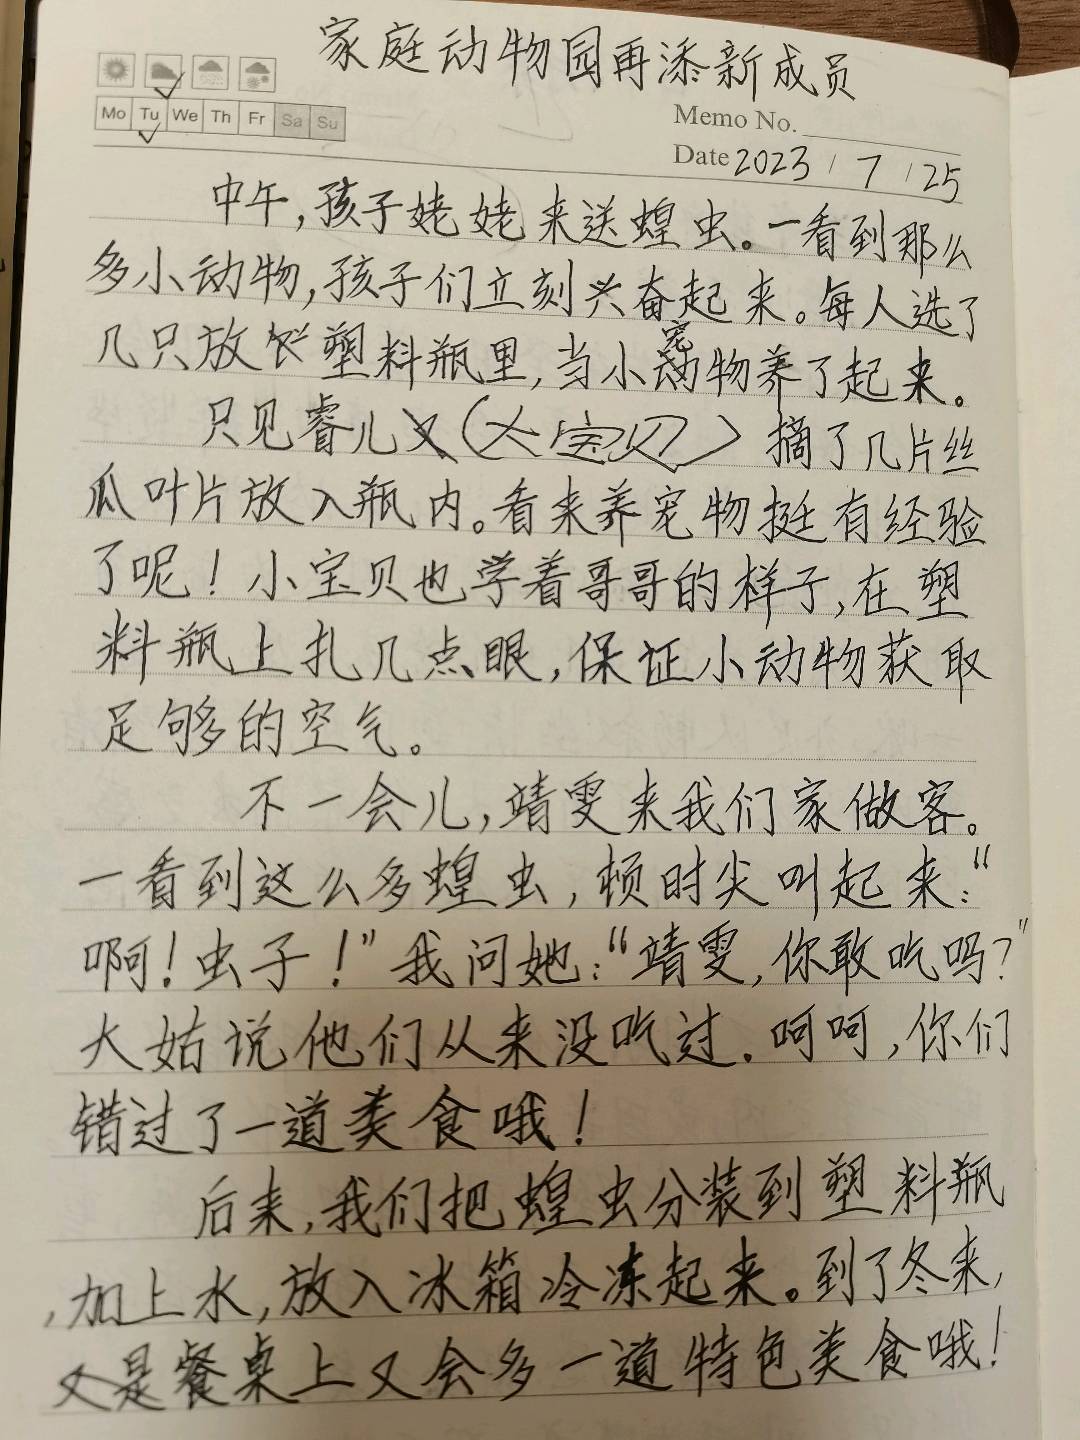 家庭动物园再添新成员
Mo Tu We Th Fr Sa Su
Memo No.
Date 2023 / 7 / 25
中午,孩子姥姥来送蝗虫。一看到那么
多小动物,孩子们立刻兴奋起来。每人选了
几只放 塑料瓶里,当小宠物养了起来。
只见睿儿(大宝贝)摘了几片丝
瓜叶片放入瓶内。看来养宠物挺有经验
了呢!小宝贝也学着哥哥的样子,在塑
料瓶上扎几点眼,保证小动物获取
足够的空气。
不一会儿,靖雯来我们家做客。
一看到这么多蝗虫,顿时尖叫起来:“
啊!虫子!”我问她:“靖雯,你敢吃吗?”
大姑说他们从来没吃过.呵呵,你们
错过了一道美食哦!
后来,我们把蝗虫分装到塑料瓶
,加上水,放入冰箱冷冻起来。到了冬来,
又是餐桌上又会多一道特色美食哦!